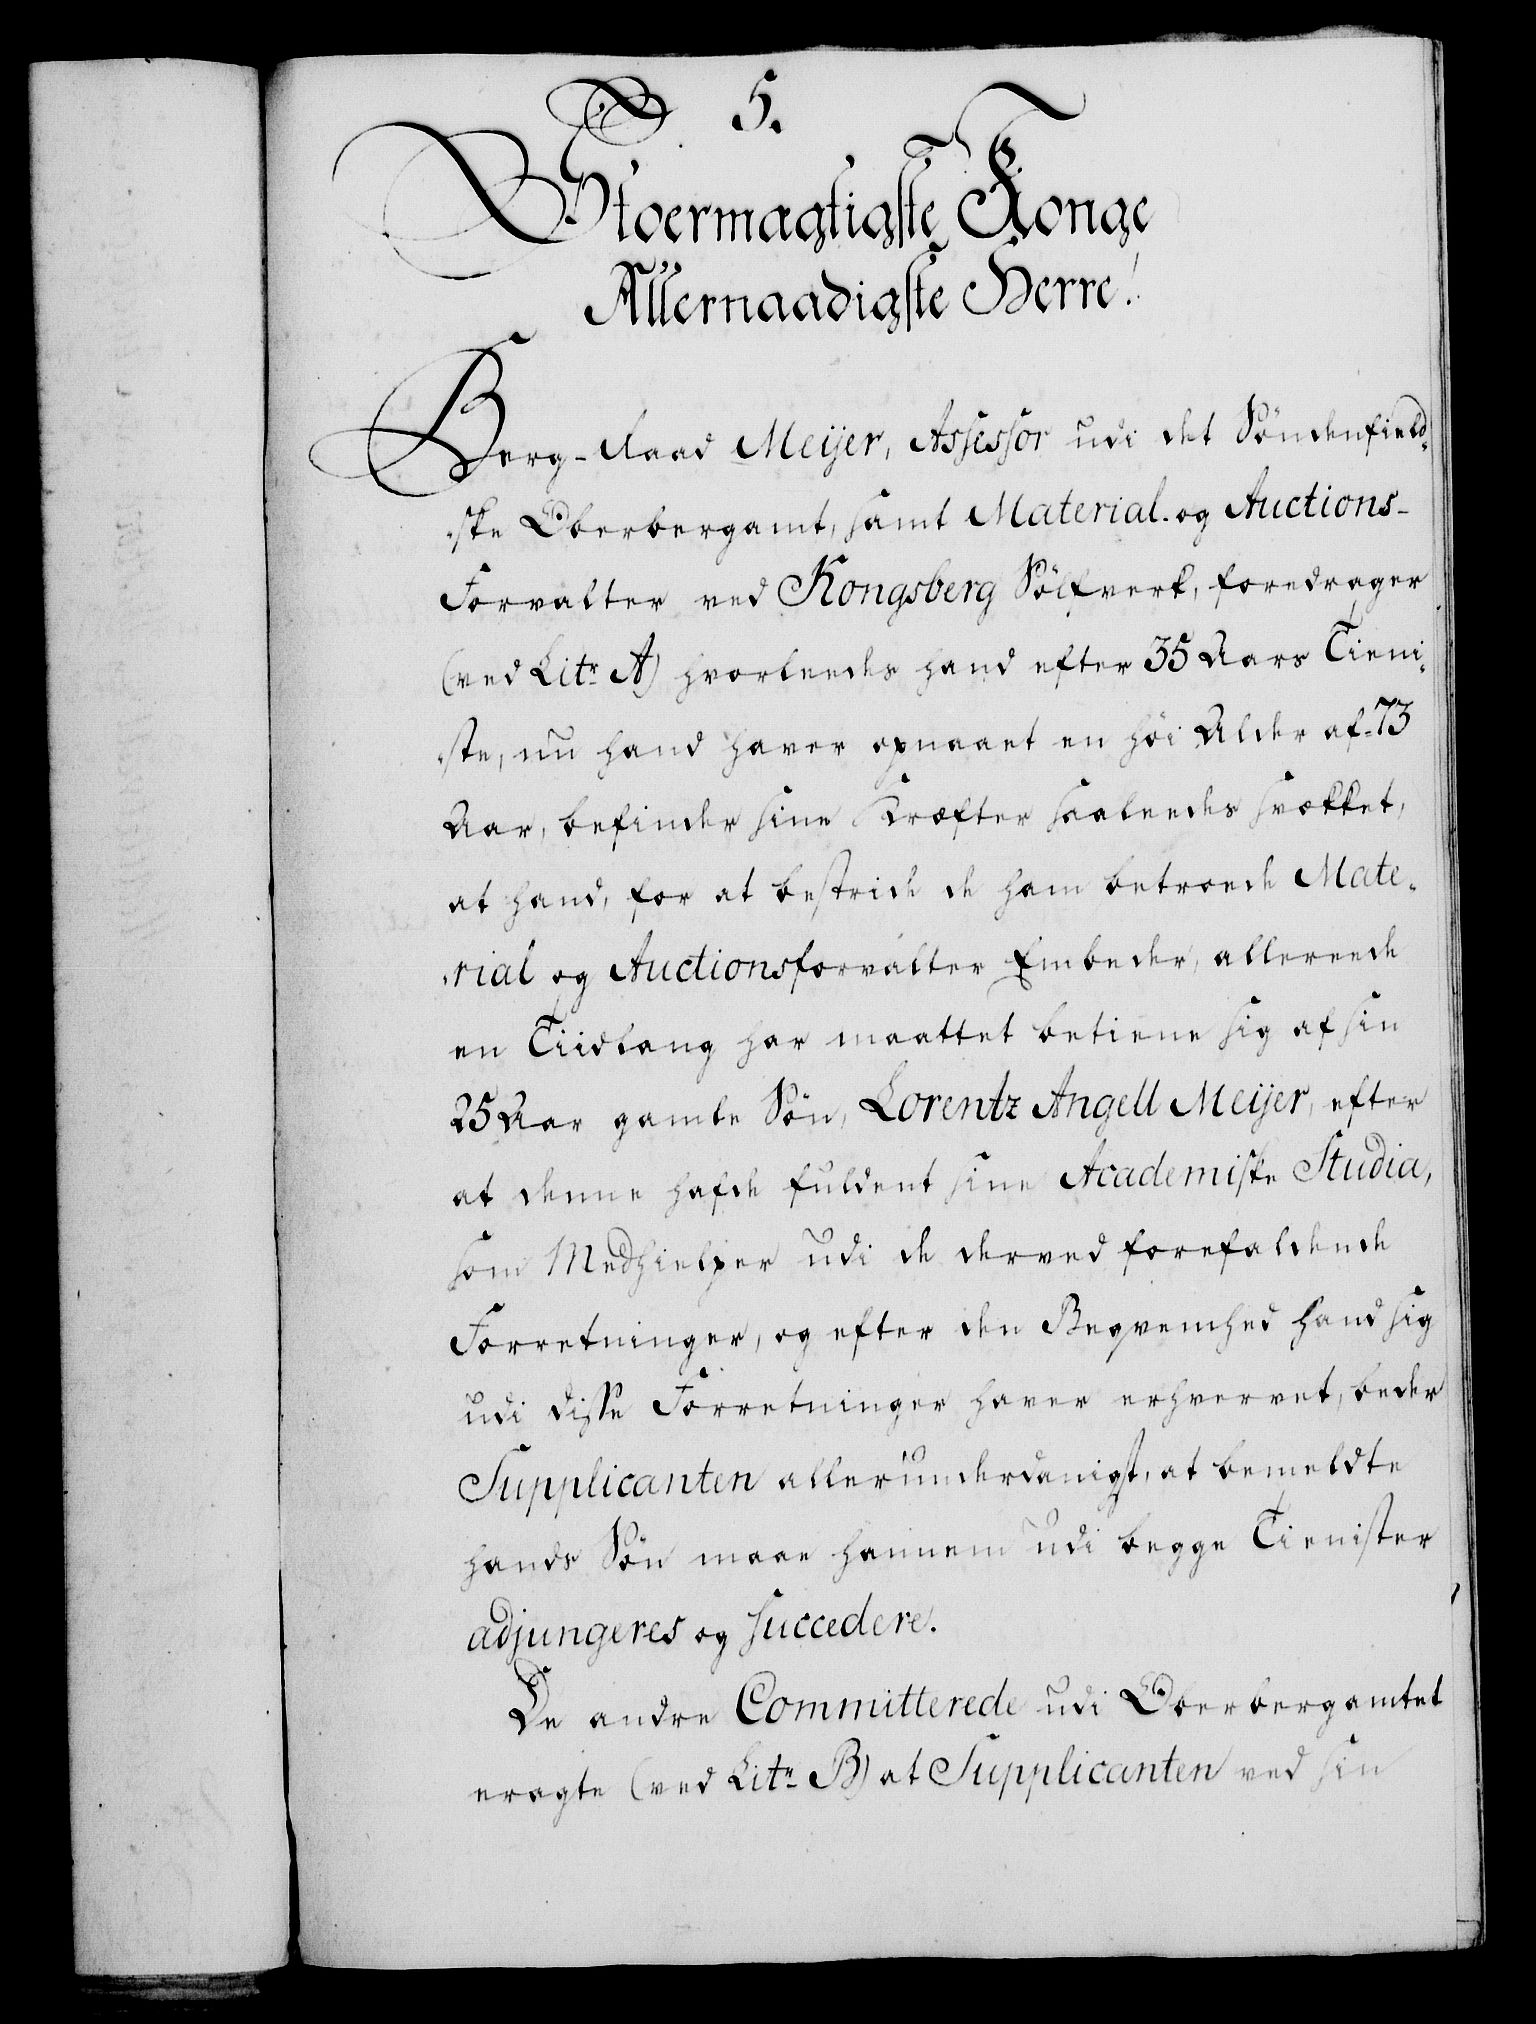 5.
Stoermagtigste Konge
Allernaadigste Herre!
Berg-Raad Meijer, Assessor udi det Söndenfield-
ske Oberbergamt, samt Material- og Auctions-
Forvalter ved Kongsberg Sölfverk, foredrager
(ved Litr A) hvorleedes hand efter 35 Aars Tieni-
ste, nu hand haver opnaaet en höi Alder af 73
Aar, befinder sine Kræfter saaleedes svækket,
at hand, for at bestride de ham betroede Mate-
rial og Auctionsforvalter Embeder, allereede
en Tiidlang har maattet betiene sig af sin
25 Aar gamle Sön, Lorentz Angell Meijer, efter
at denne hafde fuldent sine Academiske Studia,
som Medhielper udi de derved forefaldende
Forretninger, og efter den Beqvemhed hand sig
udi disse Forretninger haver erhvervet, beder
Supplicanten allerunderdanigst, at bemeldte
hands Sön maae hannem udi begge Tienister
adjungeres og succedere.
De andre Committerede udi Oberbergamtet
eragte (ved Litr B) at Supplicanten ved sin